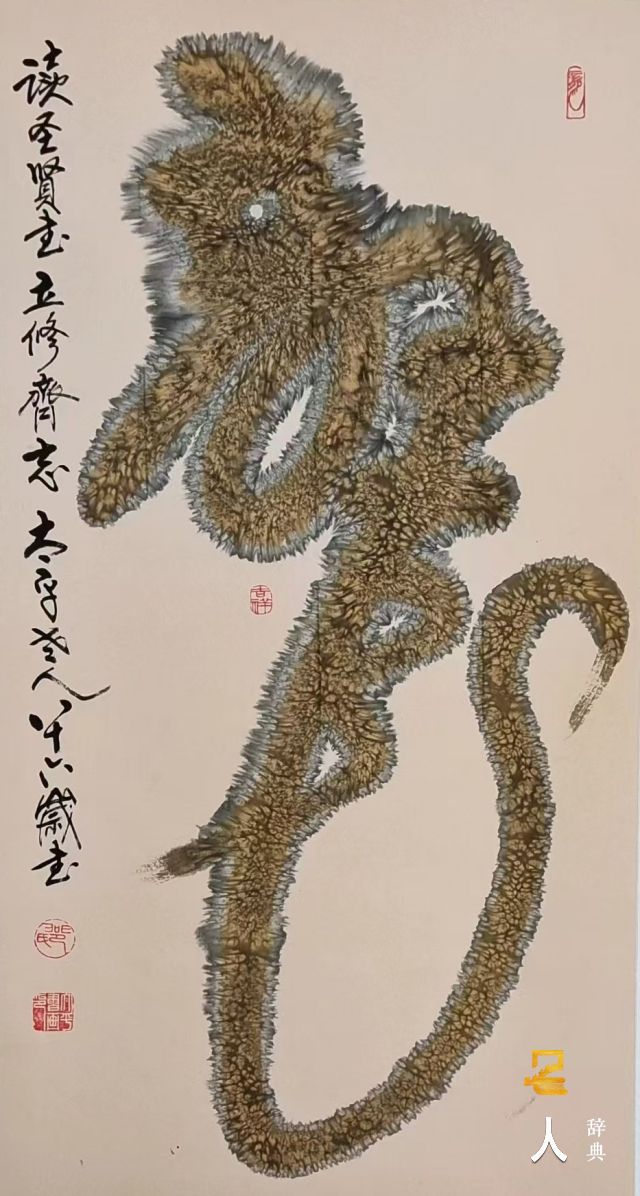 虎
读圣贤书立修齐志 老人八十六岁书
吉祥
名人辞典